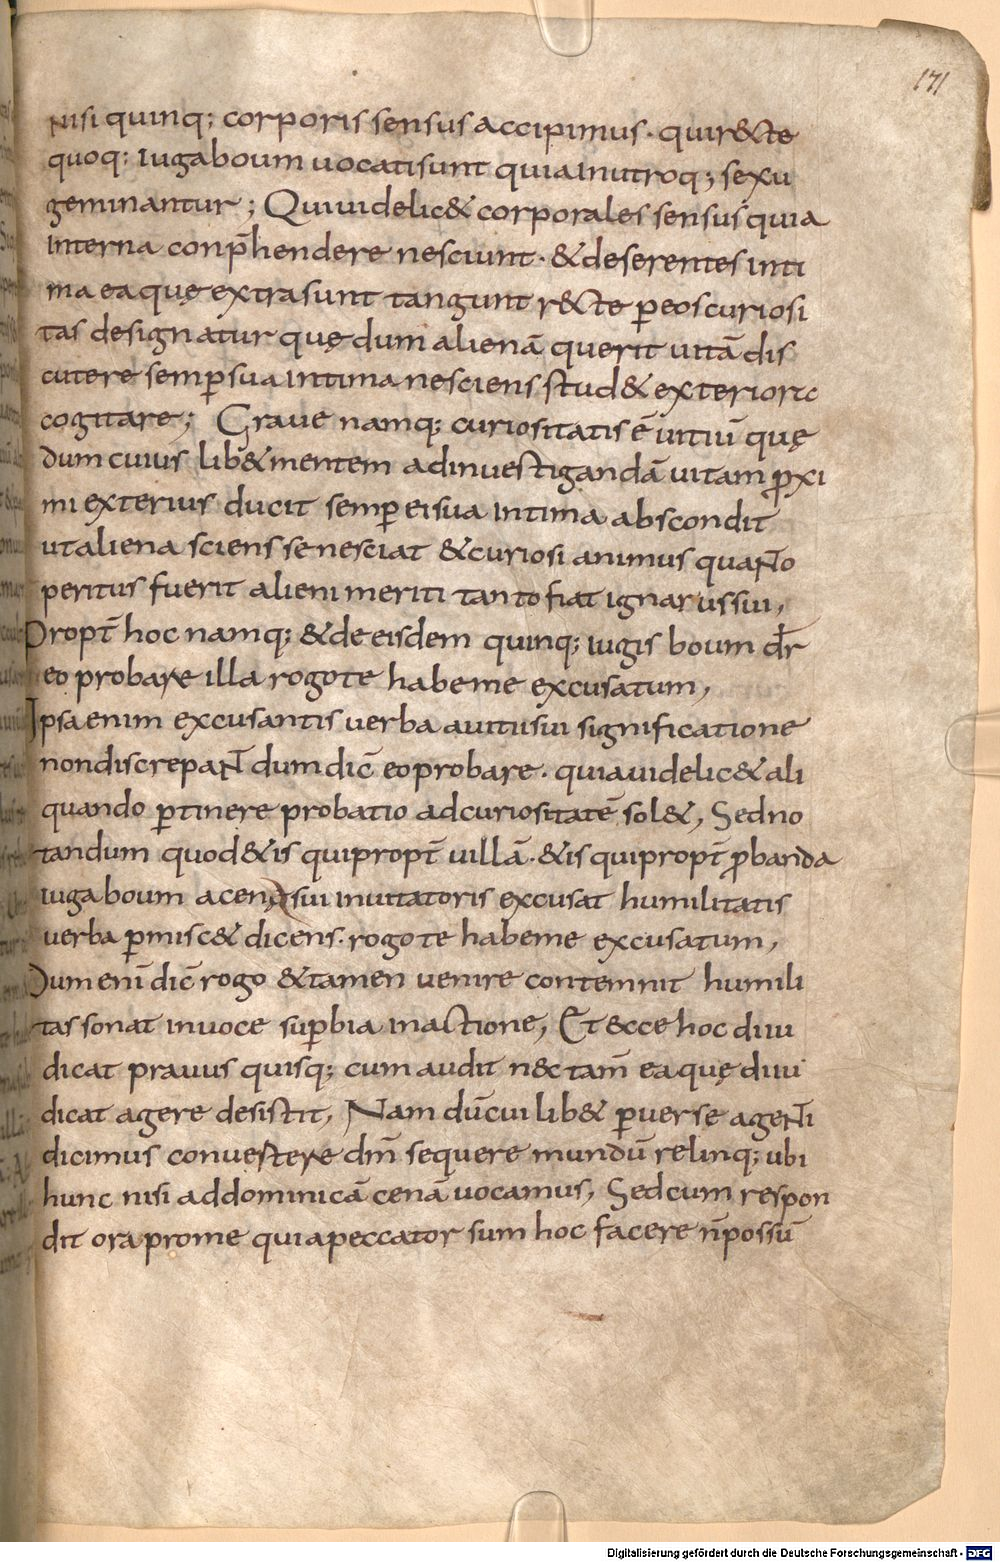 171
nisi quinq; corporis sensus accipimus· quir&cte
quoq; iuga boum uocati sunt quia in utroq; sexu
geminantur; Qui uidelic& corporales sensus quia
interna conp̄hendere nesciunt· & deserentes inti
ma ea quę extra sunt tangunt r&cte p̄ eos curiosi
tas designatur quę dum alienā querit uitā dis
cutere semp̄ sua intima nesciens stud& exteriora
cogitare; Graue namq; curiositatis ē uitiū quę
dum cuius lib& mentem ad inuestigandā uitam p̄xi
mi exterius ducit semp̄ ei sua intima abscondit
ut aliena sciens se nesciat & curiosi animus quanto
peritus fuerit alieni meriti tanto fiat ignarus sui,
Propt̄ hoc namq; & de eisdem quinq; iugis boum dr̄
eo probare illa rogo te habe me excusatum,
Ipsa enim excusantis uerba a uitii sui significatione
non discrepant dum dic̄ eo probare· quia uidelic& ali
quando p̄tinere probatio ad curiositatē sol&, Sed no
tandum quod & is qui propt̄ uillā· & is qui propt̄ p̄banda
iuga boum a cena sui inuitatoris excusat humilitatis
uerba p̄misc& dicens· rogo te habe me excusatum,
Dum enī dic̄ rogo & tamen uenire contemnit humili
tas sonat in uoce sup̄bia in actione, Et ecce hoc diiu
dicat prauus quisq; cum audit n&c tam̄ ea quę diiu
dicat agere desistit, Nam dū cui lib& p̄uerse agenti
dicimus conuertere dm̄ sequere mundū relinq; ubi
hunc nisi ad dominicā cenā uocamus, Sed cum respon
dit ora pro me quia peccator sum hoc facere n̄ possū
Digitalisierung gefördert durch die Deutsche Forschungsgemeinschaft - DFG